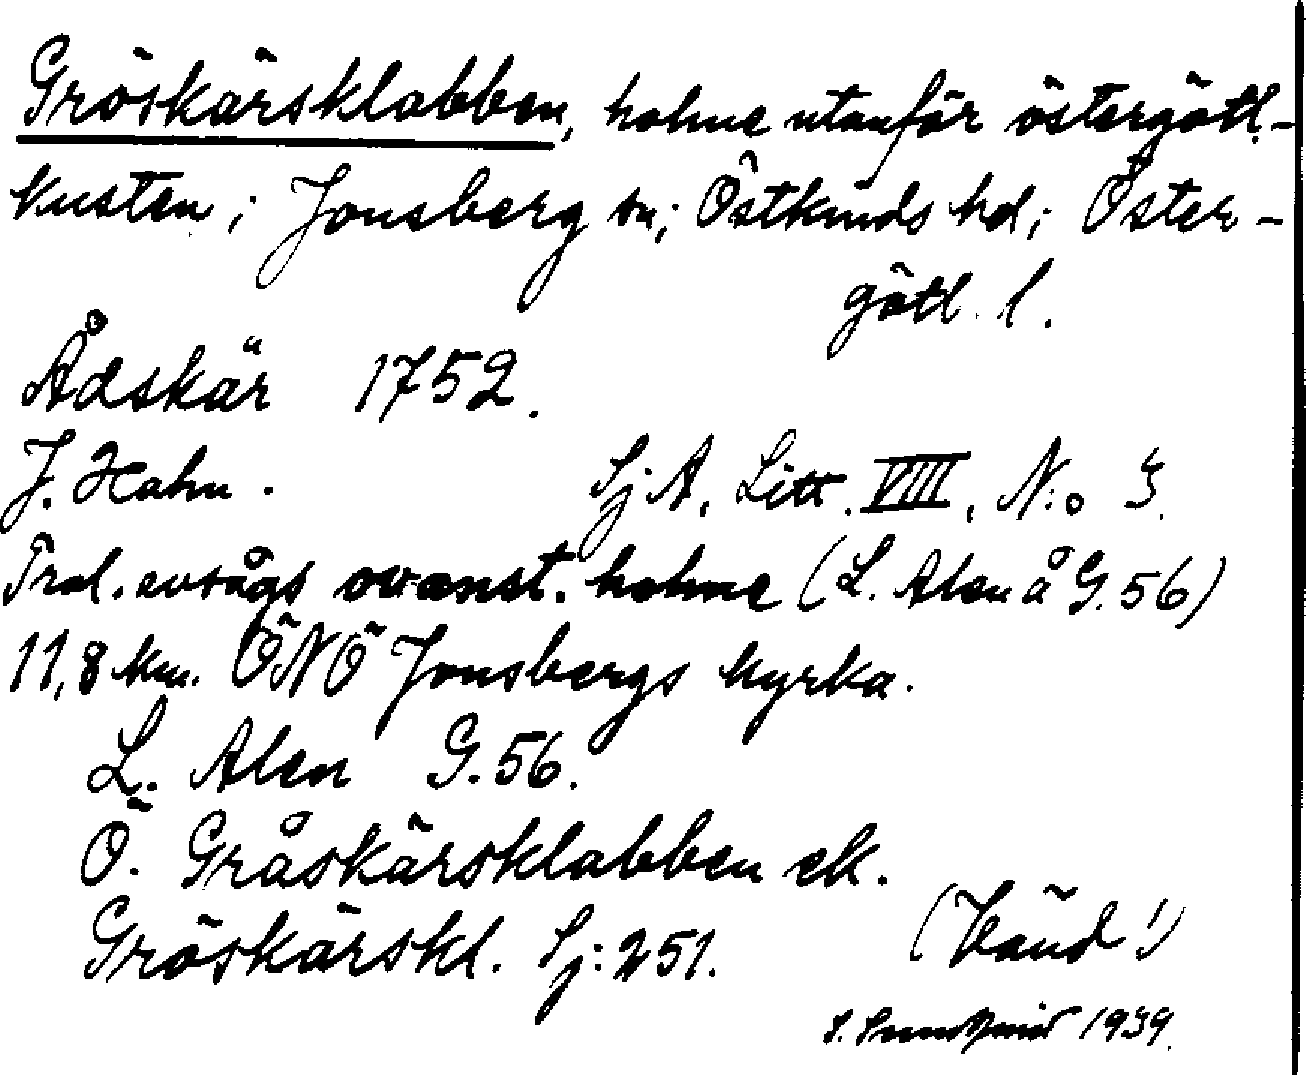 Gröskärsklabben, holme utanför östergötl.-
kusten; Jonsberg sn; Östkinds hd; Öster-
götl. l.
Ådskär 1752.
J. Hahn. Sj A, Litt. VIII, N:o 3.
Trol. avsågs ovanst. holme (L. Alen å G. 56)
11,8 km. ÖNÖ Jonsbergs kyrka.
L. Alen G. 56.
Ö. Gråskärsklabben ek.
Gröskärskl. Sj: 251.
(Vänd!)
1939.